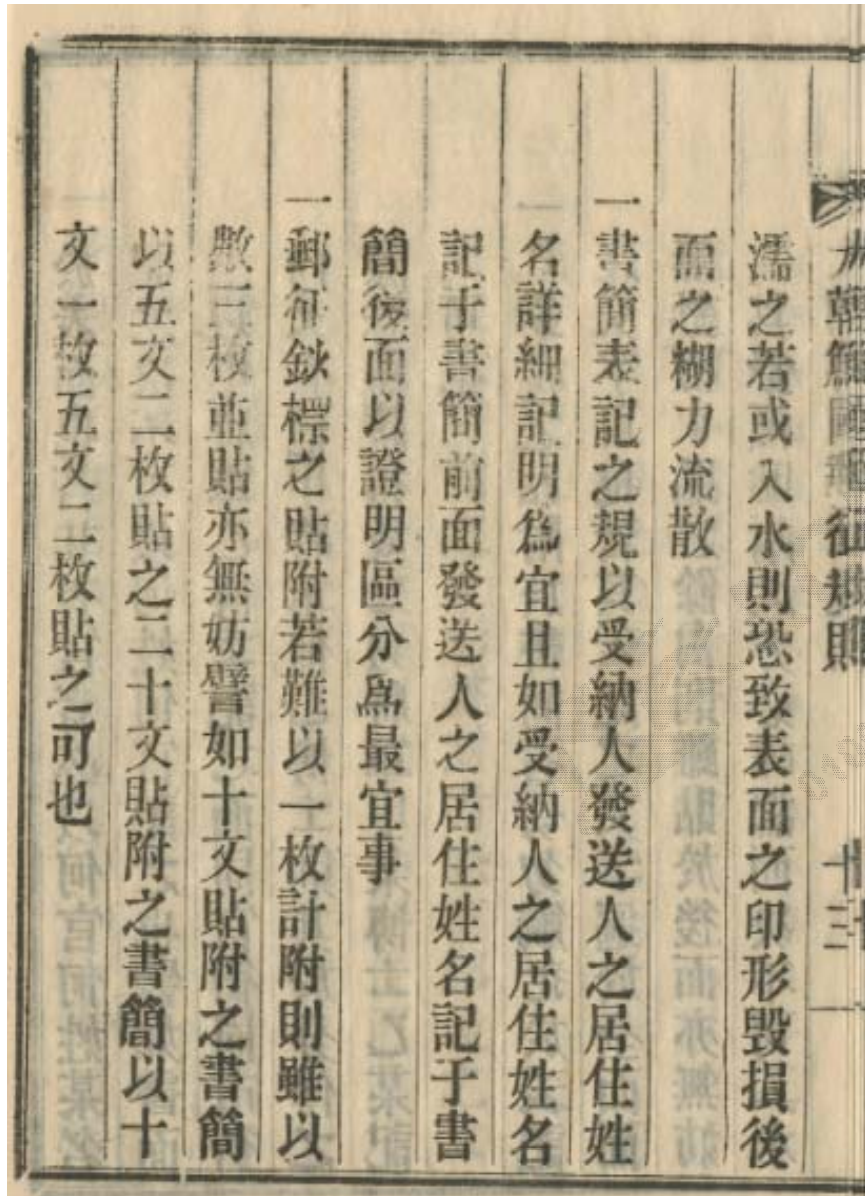 大朝鮮國郵征規則 十三
濡之若或入水則恐致表面之印形毀損後
面之糊力流散
一書簡表記之規以受納人發送人之居住姓
名詳細記明爲宜且如受納人之居住姓名
記于書簡前面發送人之居住姓名記于書
簡後面以證明區分爲最宜事
一郵征鈥標之貼附若難以一枚計附則雖以
數三枚並貼亦無妨譬如十文貼附之書簡
以五文二枚貼之二十文貼附之書簡以十
文一枚五文二枚貼之可也